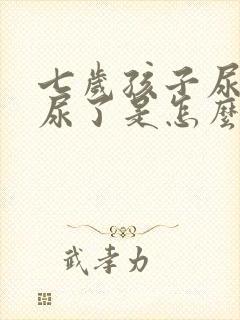 七歲孩子尿
尿了是怎麼
武孝力